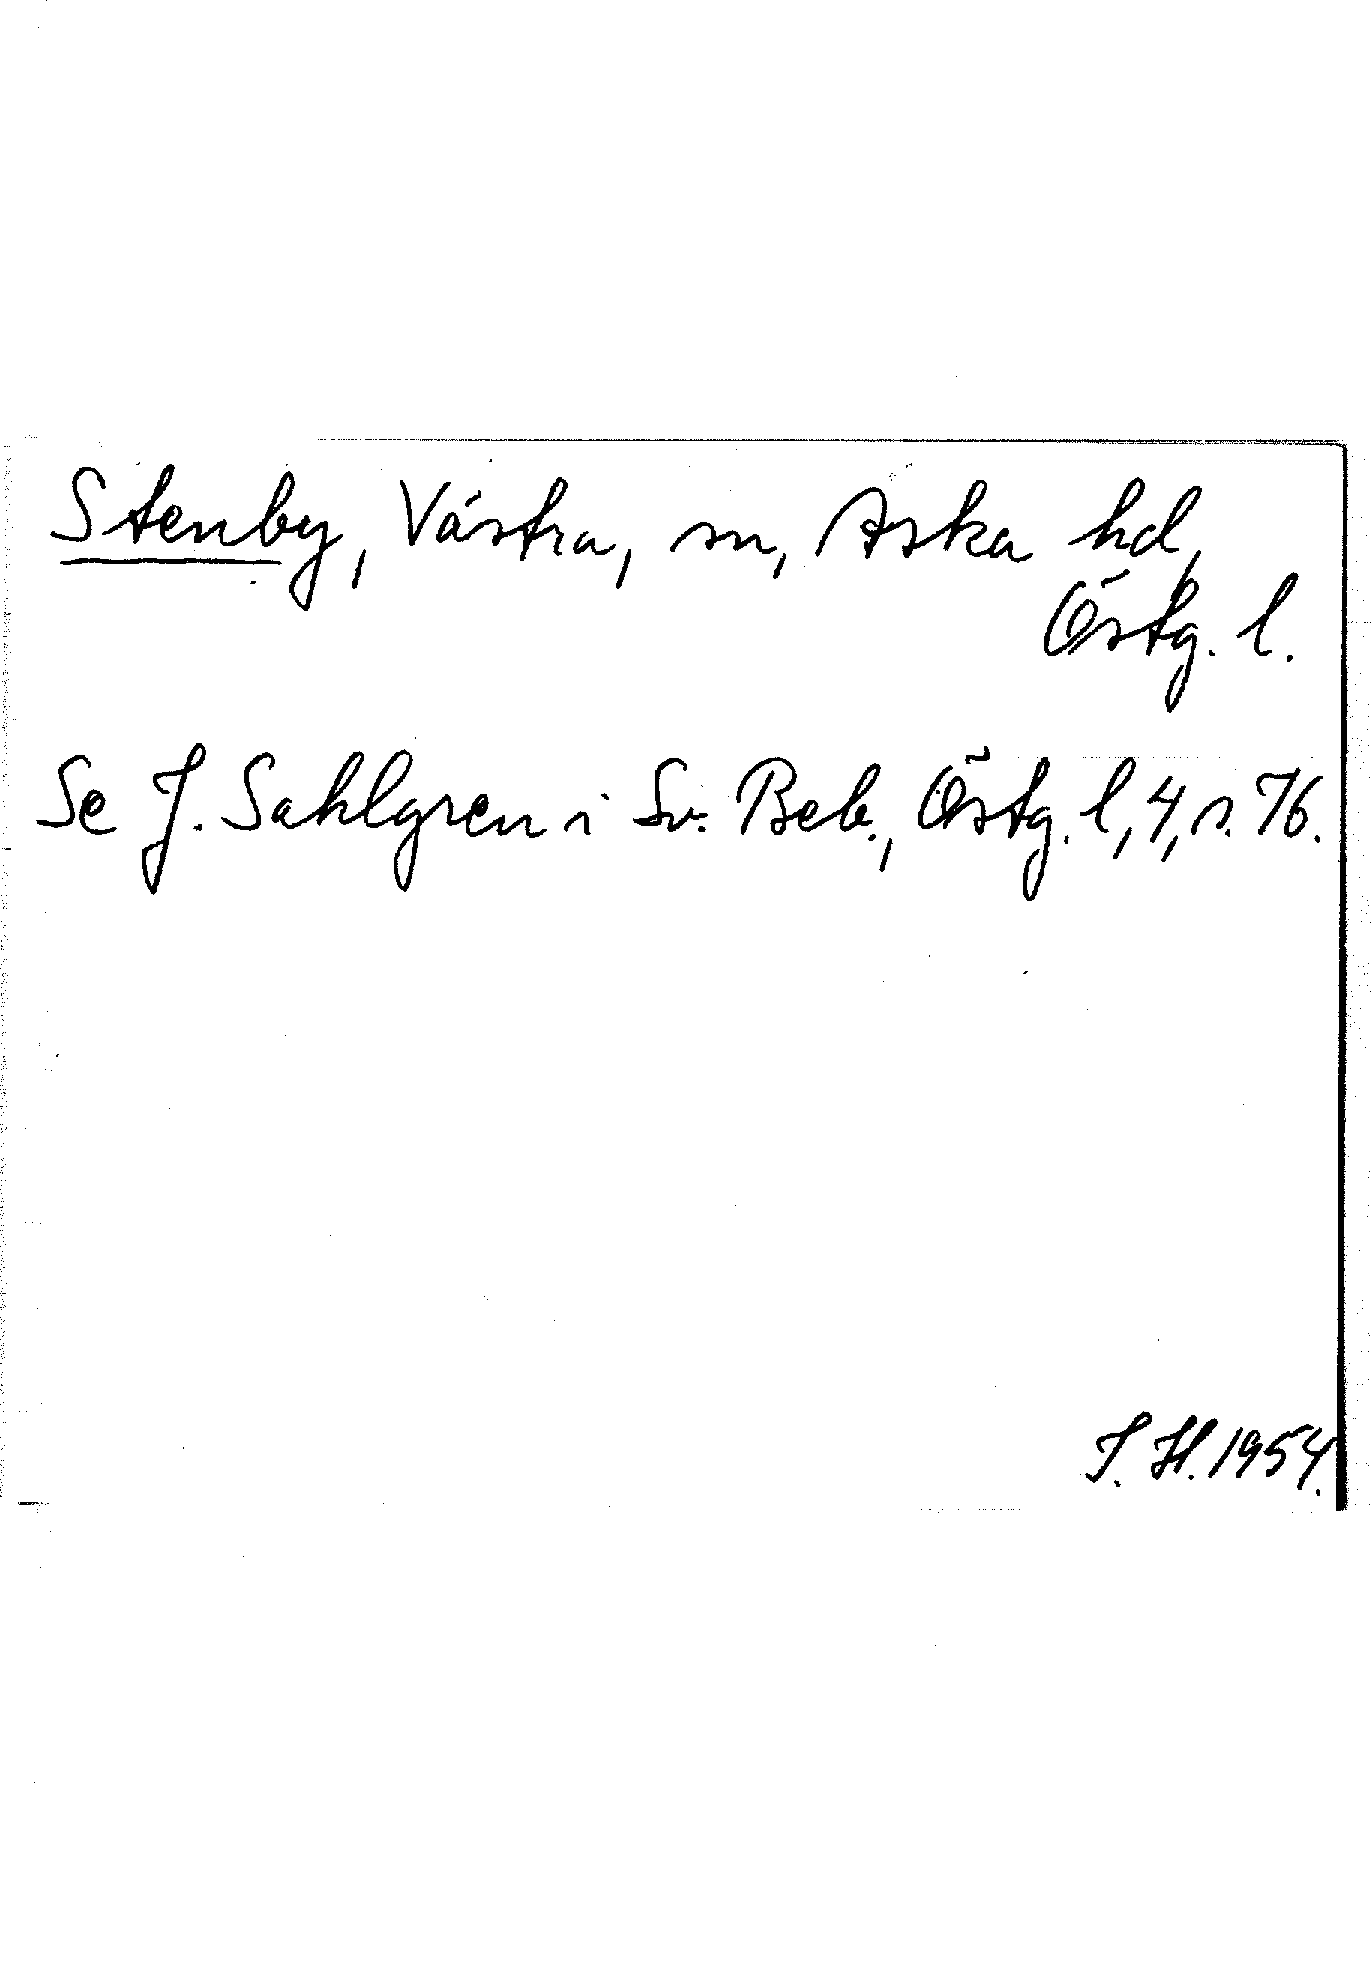 Stenby, Västra, sn, Aska hd,
Östg. l.
Se J. Sahlgren i Sv. Beb., Östg. l, 4, s. 76.
I. H. 1954.